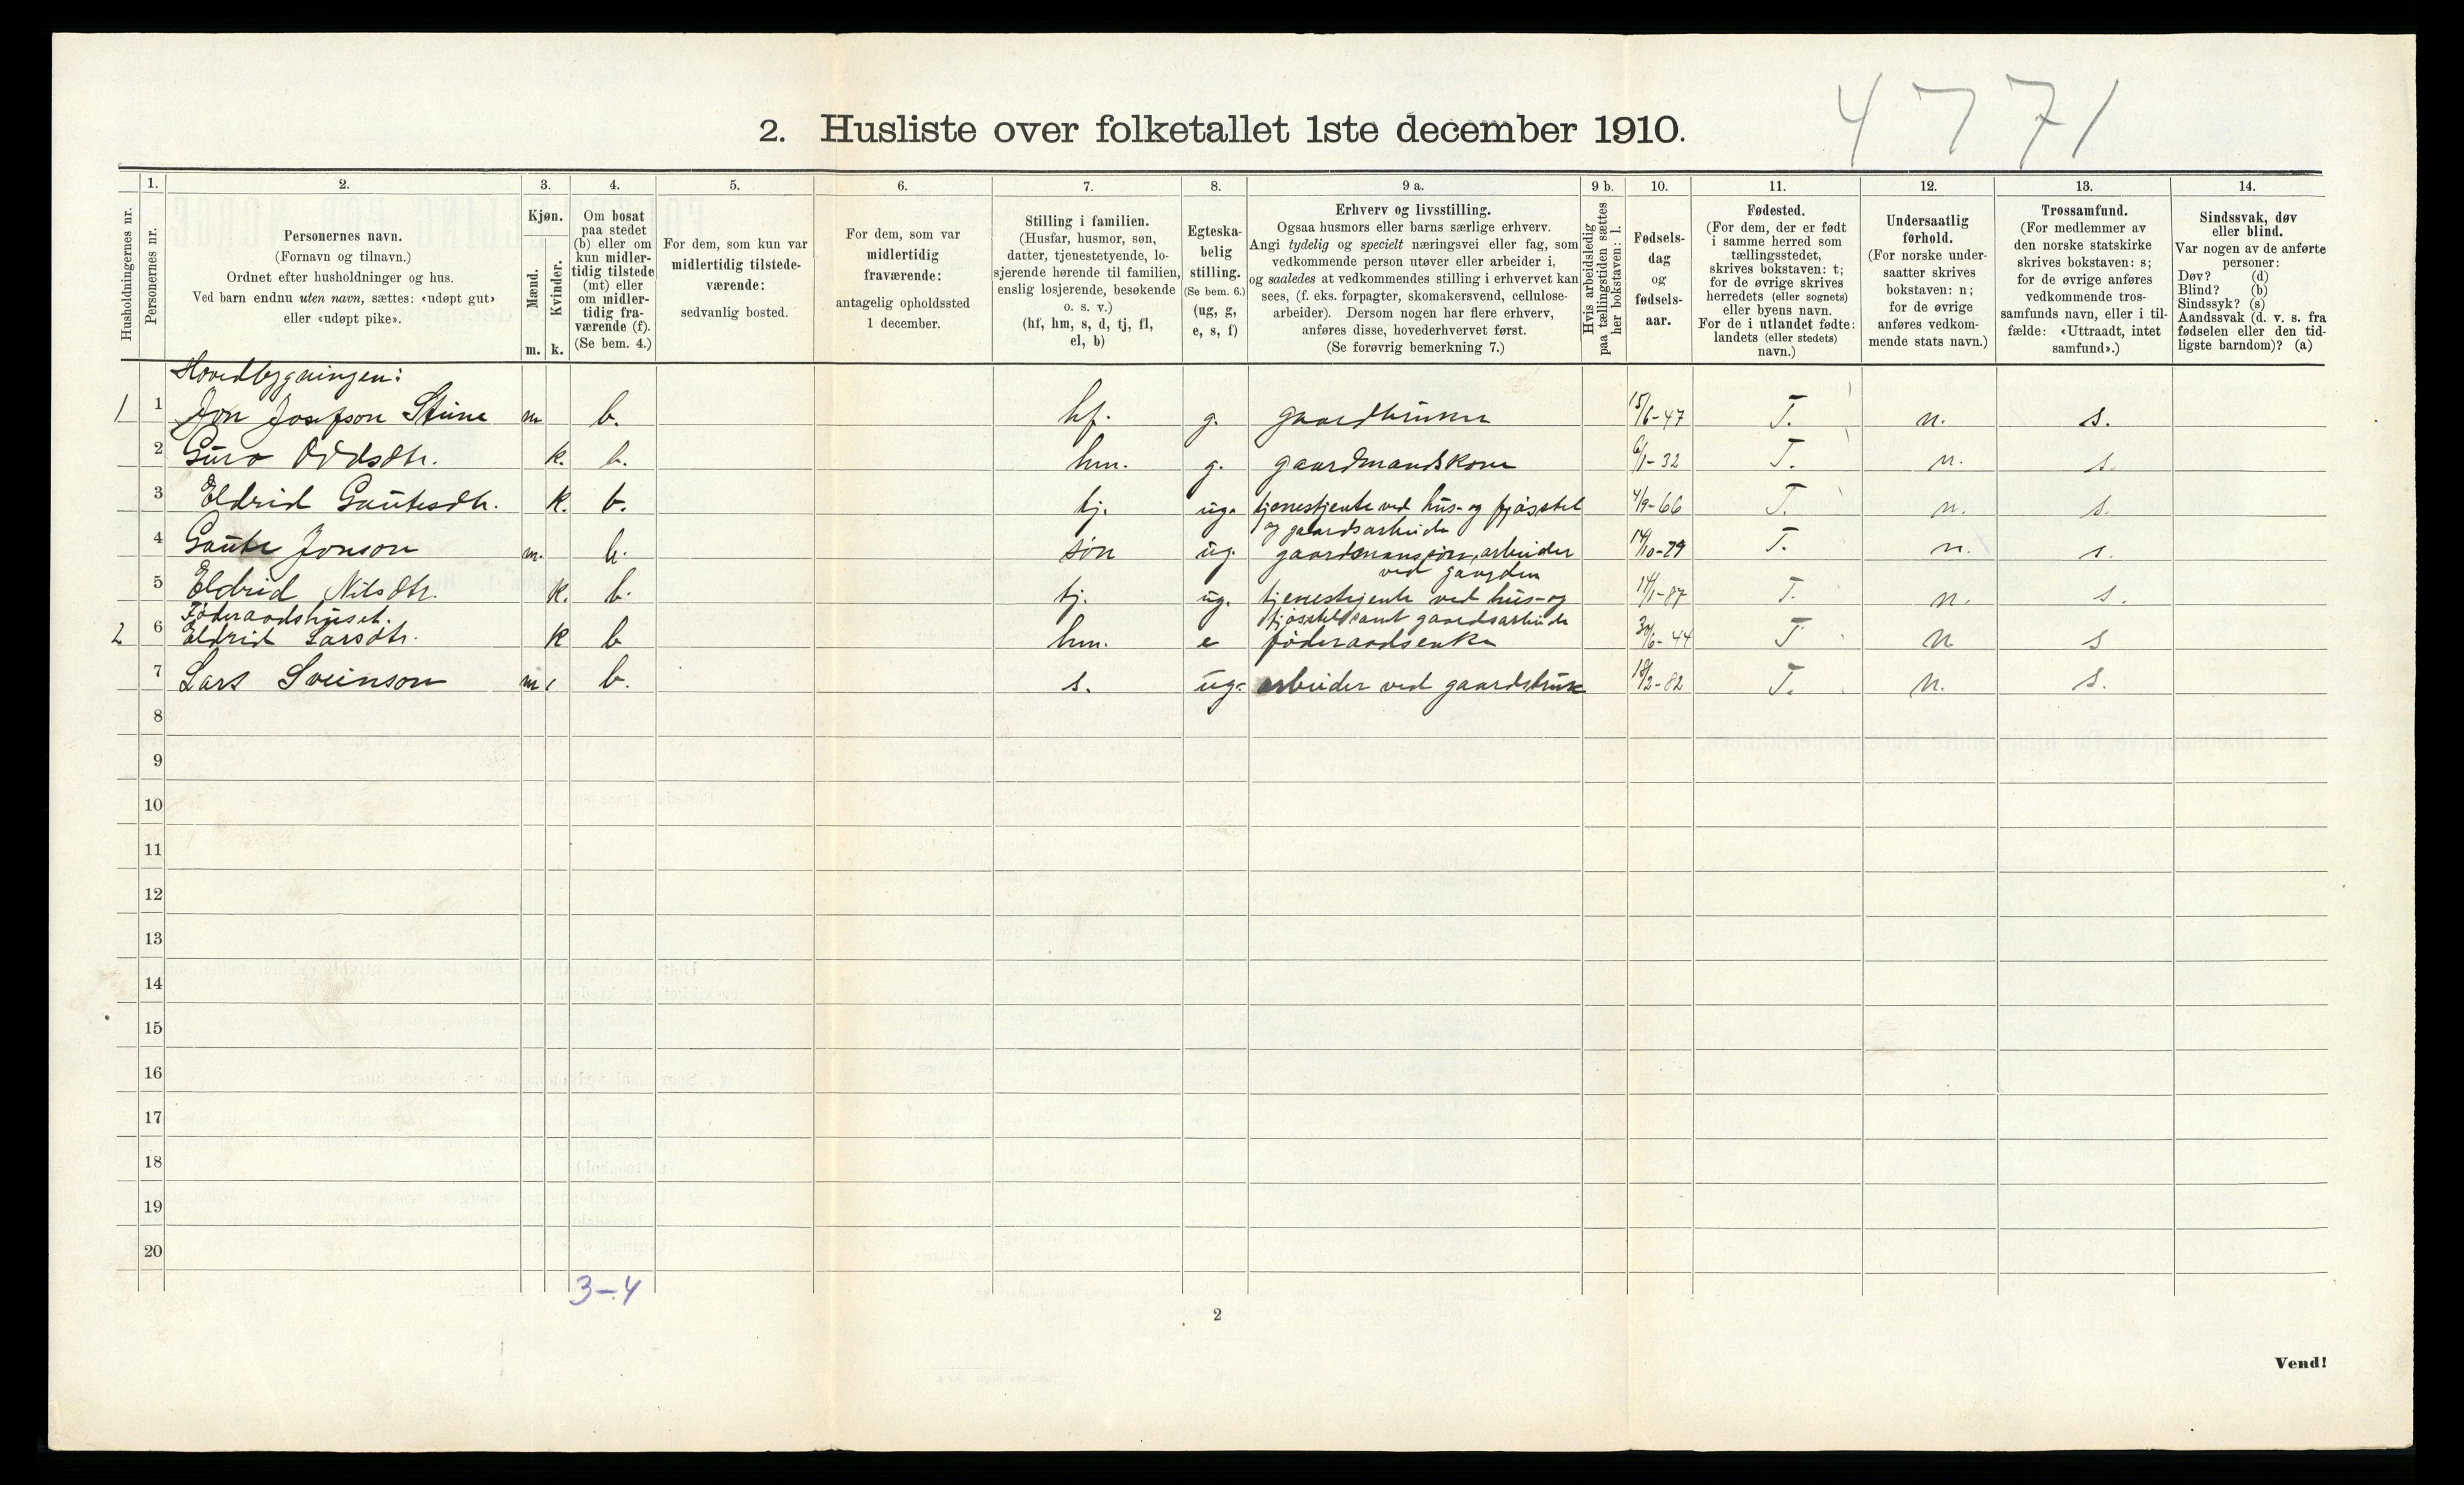 4771
2. Husliste over folketallet 1ste december 1910.
Husholdningernes nr.
1.
Personernes nr.
2.
Personernes navn.
(Fornavn og tilnavn.)
Ordnet efter husholdninger og hus.
Ved barn endnu uten navn, sættes: «udøpt gut»
eller «udøpt pike».
3.
Kjøn.
Mænd.
Kvinder.
m. k.
4.
Om bosat
paa stedet
(b) eller om
kun midler-
tidig tilstede
(mt) eller
om midler-
tidig fra-
værende (f).
(Se bem. 4.)
5.
For dem, som kun var
midlertidig tilstede-
værende:
sedvanlig bosted.
6.
For dem, som var
midlertidig
fraværende:
antagelig opholdssted
1 december.
7.
Stilling i familien.
(Husfar, husmor, søn,
datter, tjenestetyende, lo-
sjerende hørende til familien,
enslig losjerende, besøkende
o. s. v.)
(hf, hm, s, d, tj, fl,
el, b)
8.
Egteska-
belig
stilling.
(Se bem. 6.)
(ug, g,
e, s, f)
9 a.
Erhverv og livsstilling.
Ogsaa husmors eller barns særlige erhverv.
Angi tydelig og specielt næringsvei eller fag, som
vedkommende person utøver eller arbeider i,
og saaledes at vedkommendes stilling i erhvervet kan
sees, (f. eks. forpagter, skomakersvend, cellulose-
arbeider). Dersom nogen har flere erhverv,
anføres disse, hovederhvervet først.
(Se forøvrig bemerkning 7.)
9 b.
Hvis arbeidsledig
paa tællingstiden sættes
her bokstaven: l.
10.
Fødsels-
dag
og
fødsels-
aar.
11.
Fødested.
(For dem, der er født
i samme herred som
tællingsstedet,
skrives bokstaven: t;
for de øvrige skrives
herredets (eller sognets)
eller byens navn.
For de i utlandet fødte:
landets (eller stedets)
navn.)
12.
Undersaatlig
forhold.
(For norske under-
saatter skrives
bokstaven: n;
for de øvrige
anføres vedkom-
mende stats navn.)
13.
Trossamfund.
(For medlemmer av
den norske statskirke
skrives bokstaven: s;
for de øvrige anføres
vedkommende tros-
samfunds navn, eller i til-
fælde: «Uttraadt, intet
samfund».)
14.
Sindssvak, døv
eller blind.
Var nogen av de anførte
personer:
Døv? (d)
Blind? (b)
Sindssyk? (s)
Aandssvak (d. v. s. fra
fødselen eller den tid-
ligste barndom)? (a)
Hovedbygningen:
1 1 Jon Josefson m b. hf. g. gaardbruker 15/6-47 T. n. s.
2 Guro Oddsdtr. k. b. hm. g. gaardmandskone 6/1-32 T. n. s.
3 Eldrid Gautesdtr. k. b. tj. ug. tjenestjente ved hus- og fjøsstel
og gaardsarbeide 4/9-66 T. n. s.
4 Gaute Jonson m. b. søn ug. gaardmanssøn, arbeider
ved gaarden 14/10-79 T. n. s.
5 Eldrid Nilsdtr. k. b. tj. ug. tjenestejente ved hus- og
fjøsstel samt gaardsarbeide 14/1-87 T. n. s.
Føderaadshuset.
2 6 Eldrid Larsdtr. k b hm. e føderaadsenke 30/6-44 T n s
7 Lars Sveinson m b. s. ug. arbeider ved gaardsbruk 18/2-82 T. n. s.
8
9
10
11
12
13
14
15
16
17
18
19
20
3-4
2
Vend!